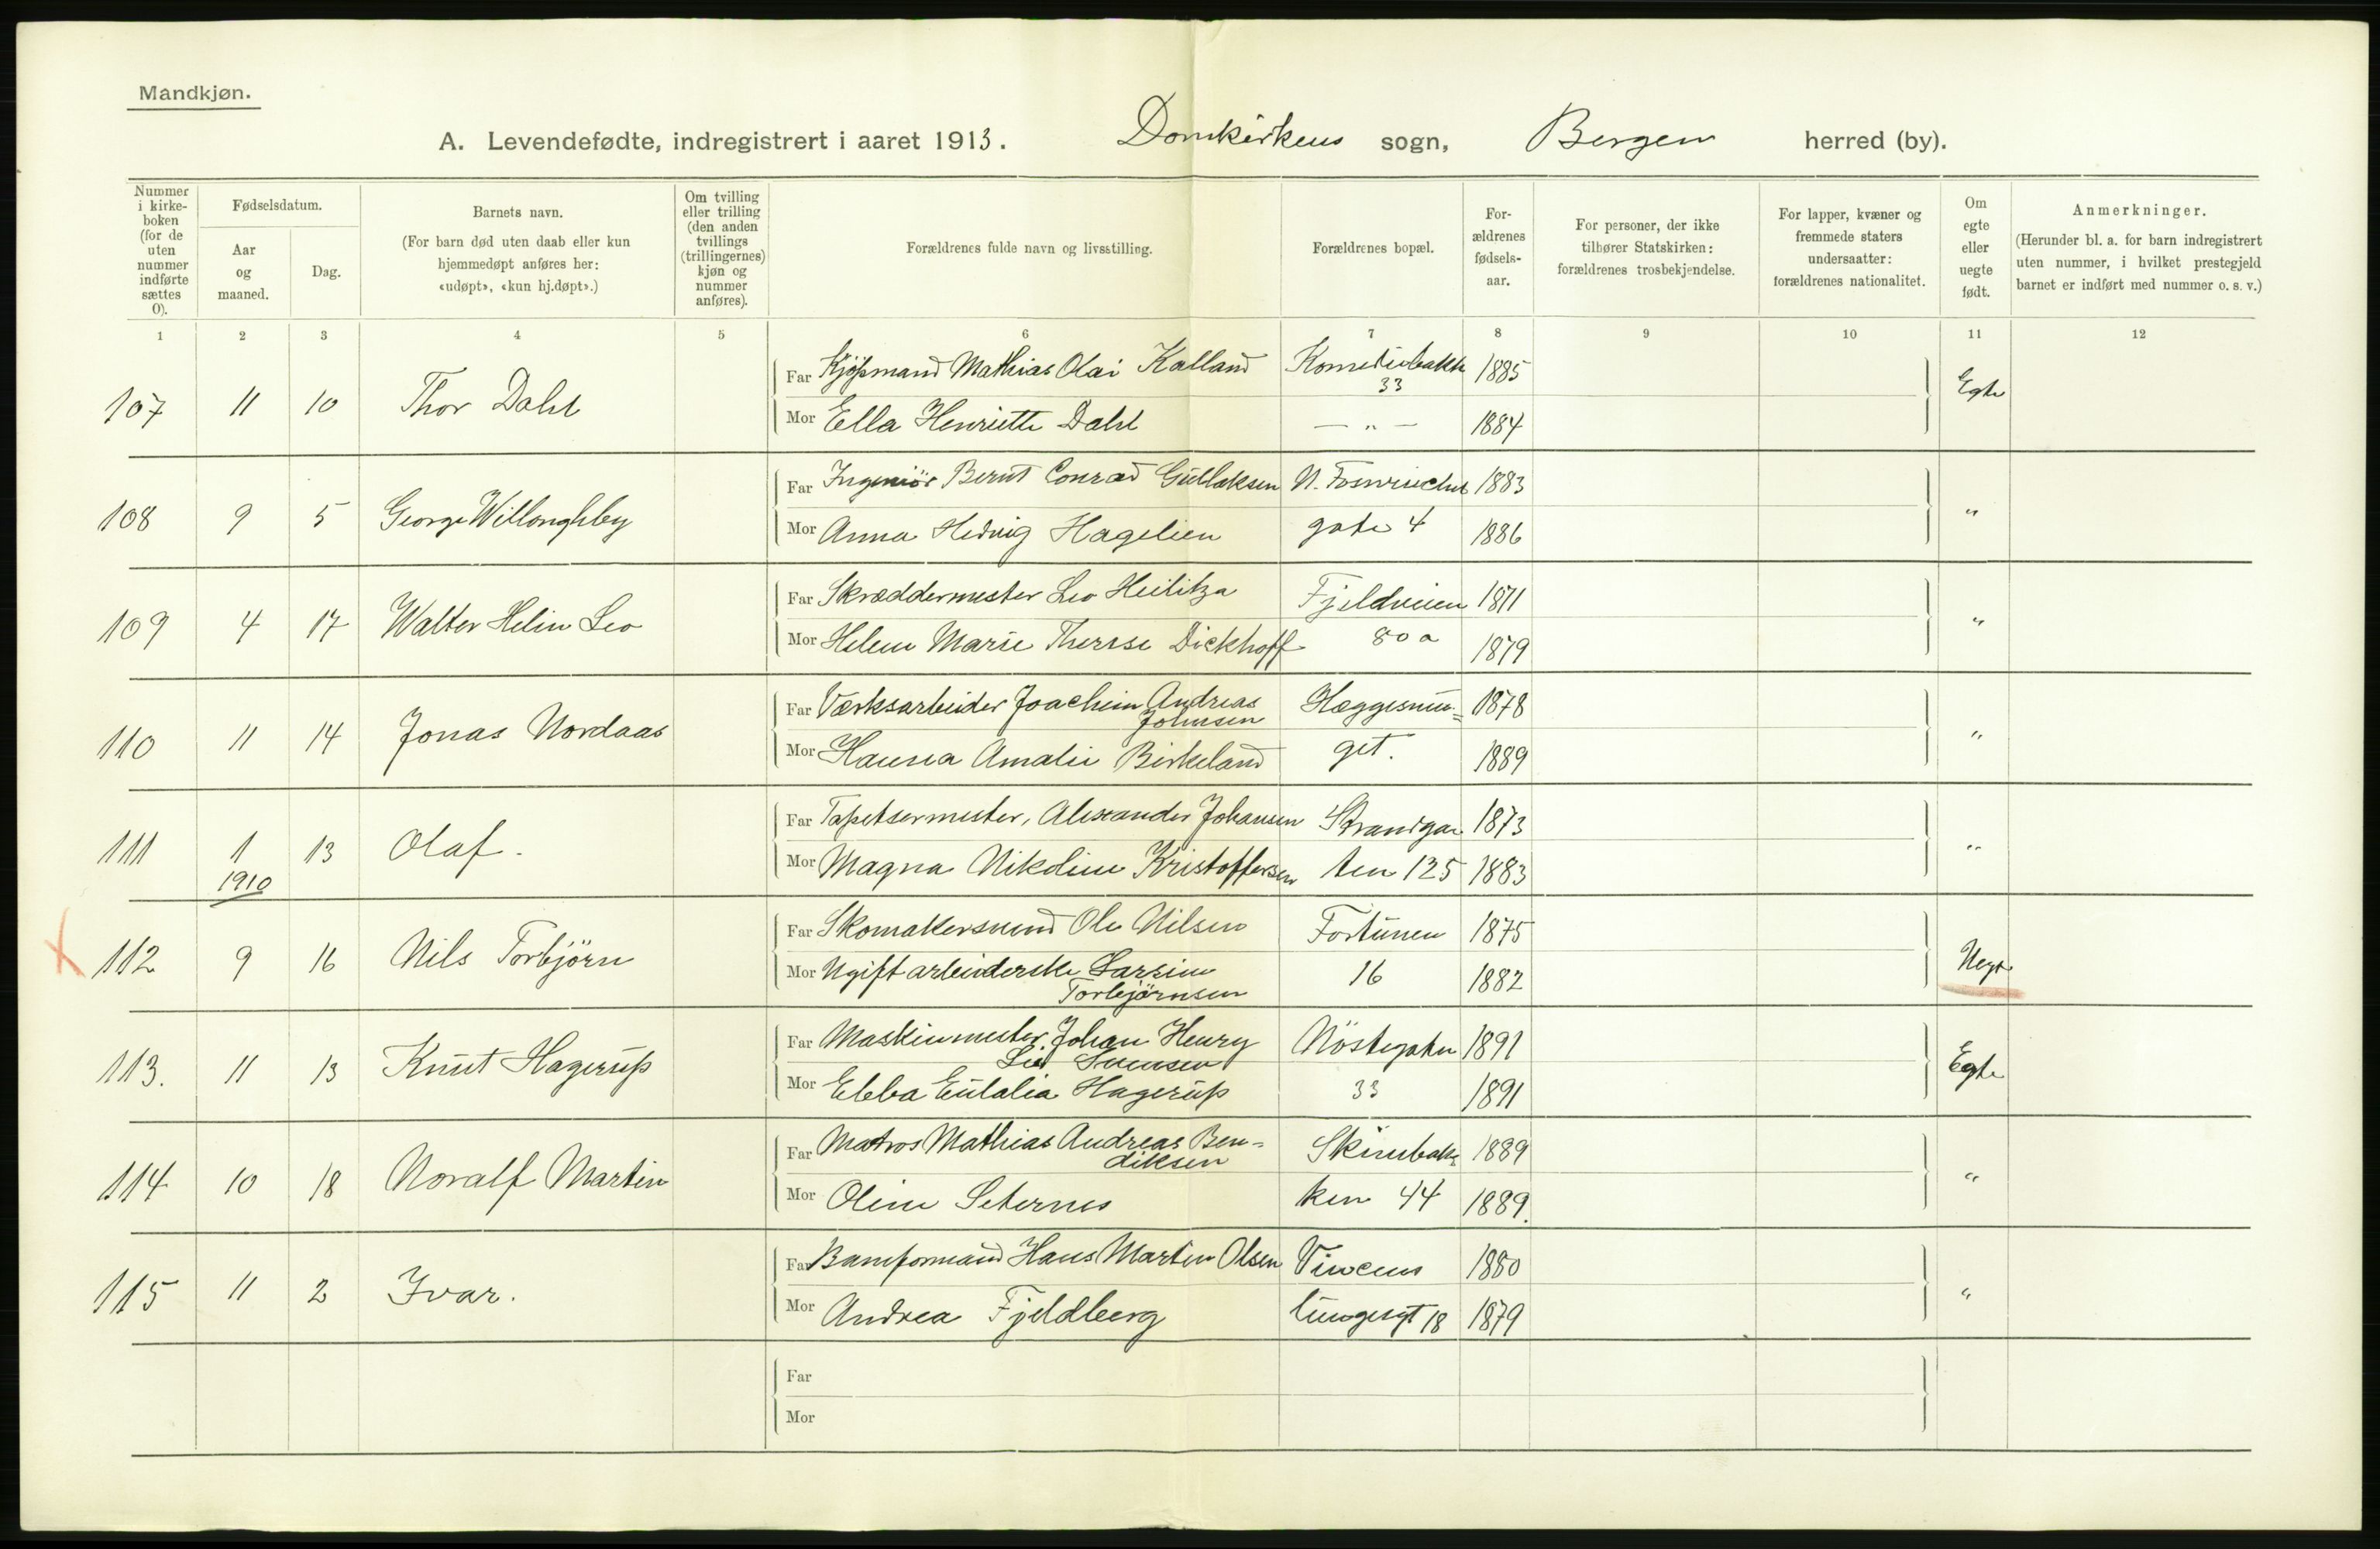 Mandkjøn.
A. Levendefødte, indregistrert i aaret 1913. Domkirkens sogn, Bergen herred (by).
Nummer i kirke-boken (for de uten nummer indførte sættes 0).
Fødselsdatum.
Aar og maaned.
Dag.
Barnets navn.
(For barn død uten daab eller kun hjemmedøpt anføres her: «udøpt», «kun hj.døpt».)
Om tvilling eller trilling (den anden tvillings (trillingernes) kjøn og nummer anføres).
Forældrenes fulde navn og livsstilling.
Forældrenes bopæl.
For-ældrenes fødsels-aar.
For personer, der ikke tilhører Statskirken: forældrenes trosbekjendelse.
For lapper, kvæner og fremmede staters undersaatter: forældrenes nationalitet.
Om egte eller uegte født.
Anmerkninger.
(Herunder bl. a. for barn indregistrert uten nummer, i hvilket prestegjeld barnet er indført med nummer o. s. v.)
1 2 3 4 5 6 7 8 9 10 11 12
107 11 10 Thor Dahl
Far Kjøpmand Mathias Olai Kalland Komediebakk 33 1885 Egte
Mor Ella Henriette Dahl — " — 1884
108 9 5 George Willoughby
Far Ingeniör Bernt Conrad Gullaksen N. 1883 "
Mor Anna Hedvig Hagelien gate 4 1886
109 4 17 Walter Helin Leo
Far Skræddermester Leo Heilitza Fjeldveien 1871 "
Mor Helene Marie Therese Dickhoff 80 a 1879
110 11 14 Jonas Nordaas
Far Værksarbeider Joachim Andreas Johnsen 1878 "
Mor Hanna Amalie Birkeland get. 1889
111 1 13 Olaf.
1910
Far Tapetsermester, Alexander Johansen Strandga 1873 "
Mor Magna Nikoline Kristoffersen ten 125 1883
X 112 9 16 Nils Torbjörn
Far Skomakersvend Ole Nilsen Fortunen 1875 Uegte
Mor Ugift arbeiderske Larsine Torbjörnsen 16 1882
113. 11 13 Knut Hagerup
Far Maskinmester Johan Henry Svensen Nöstegaten 1891 Egte
Mor Ebba Eulalia Hagerup 33 1891
114 10 18 Noralf Martin
Far Matros Mathias Andreas Ben=diksen Skivebak 1889 "
Mor Oline Seternes ken 44 1889.
115 11 2 Ivar.
Far Hans Martin Olsen Vincens 1880 "
Mor Andrea Fjeldberg lungesgt 18 1879
Far
Mor